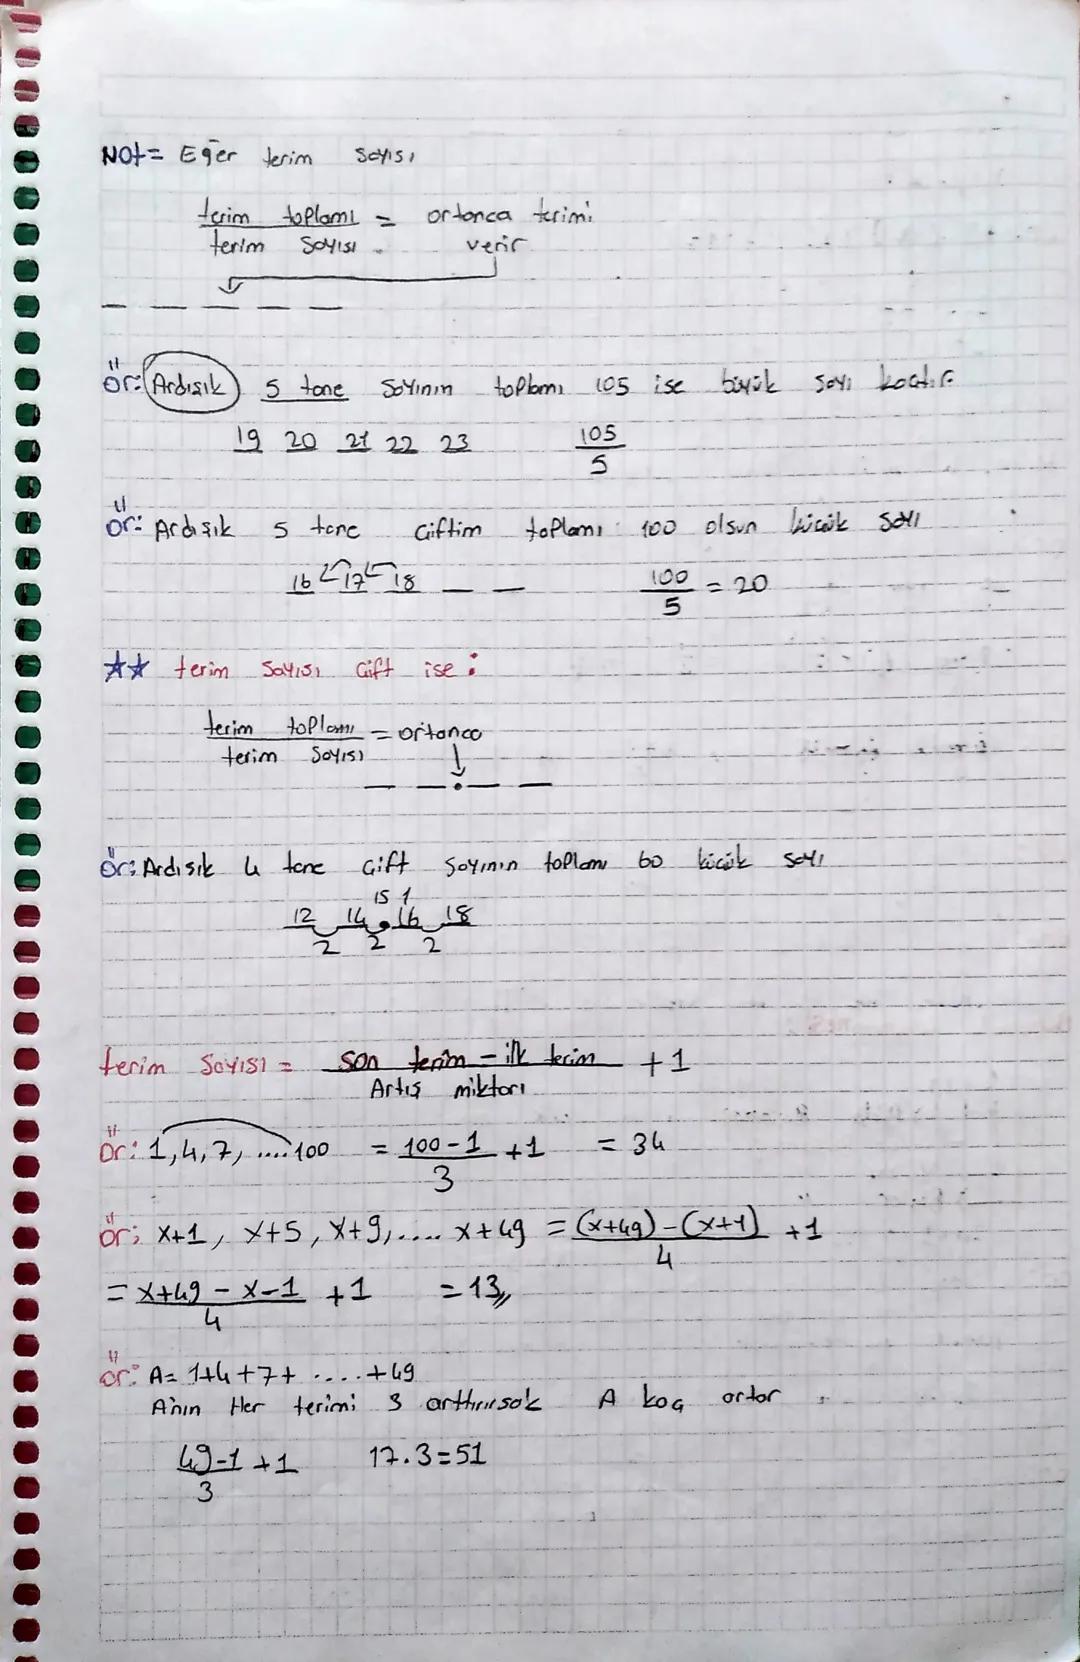 Not= Eğer terim sayısı
terim toplamı = ortanca terimi
terim sayısı verir
ör: Ardışık 5 tane sayının toplamı 105 ise büyük sayı kaçtır
19 20 21 22 23 105
5
ör: Ardışık 5 tane çiftim toplamı 100 olsun küçük sayı
16 17 18 100 = 20
5
★★ terim sayısı çift ise:
terim toplamı = ortanca
terim sayısı
ör: Ardışık 4 tane çift sayının toplamı 60 küçük sayı
15 1
12 14 16 18
2 2 2
terim sayısı = son terim - ilk terim + 1
Artış miktarı
ör: 1,4,7, ....100 = 100-1 +1 = 34
3
ör; x+1, x+5, x+9,.... x+49 = (x+49)-(x+1) +1
4
= x+49 - x-1 +1 = 13,,
4
ör: A= 1+4+7+ ....+49
A'nın Her terimi 3 arttırırsak A kaç artar
49-1 +1 17.3=51
3